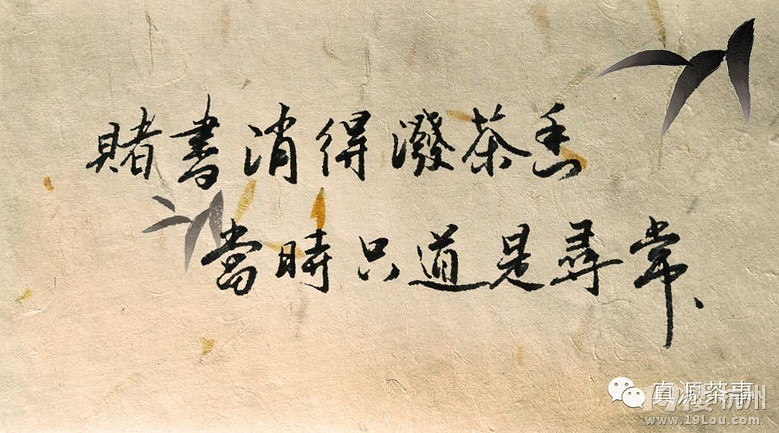 賭書消得潑茶香
當時只道是尋常、
真源茶事
www.19Lou.com